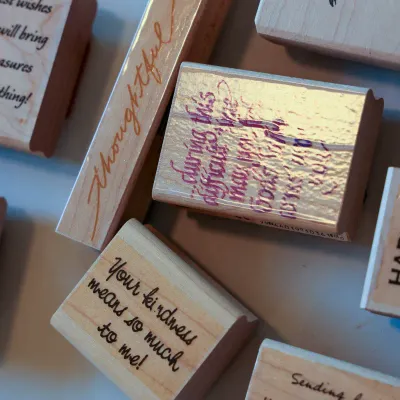 st wishes
will bring
asures
thing!
thoughtful
during this
difficult time
may you
Your kindness
means so much
to me!
HA
Sending